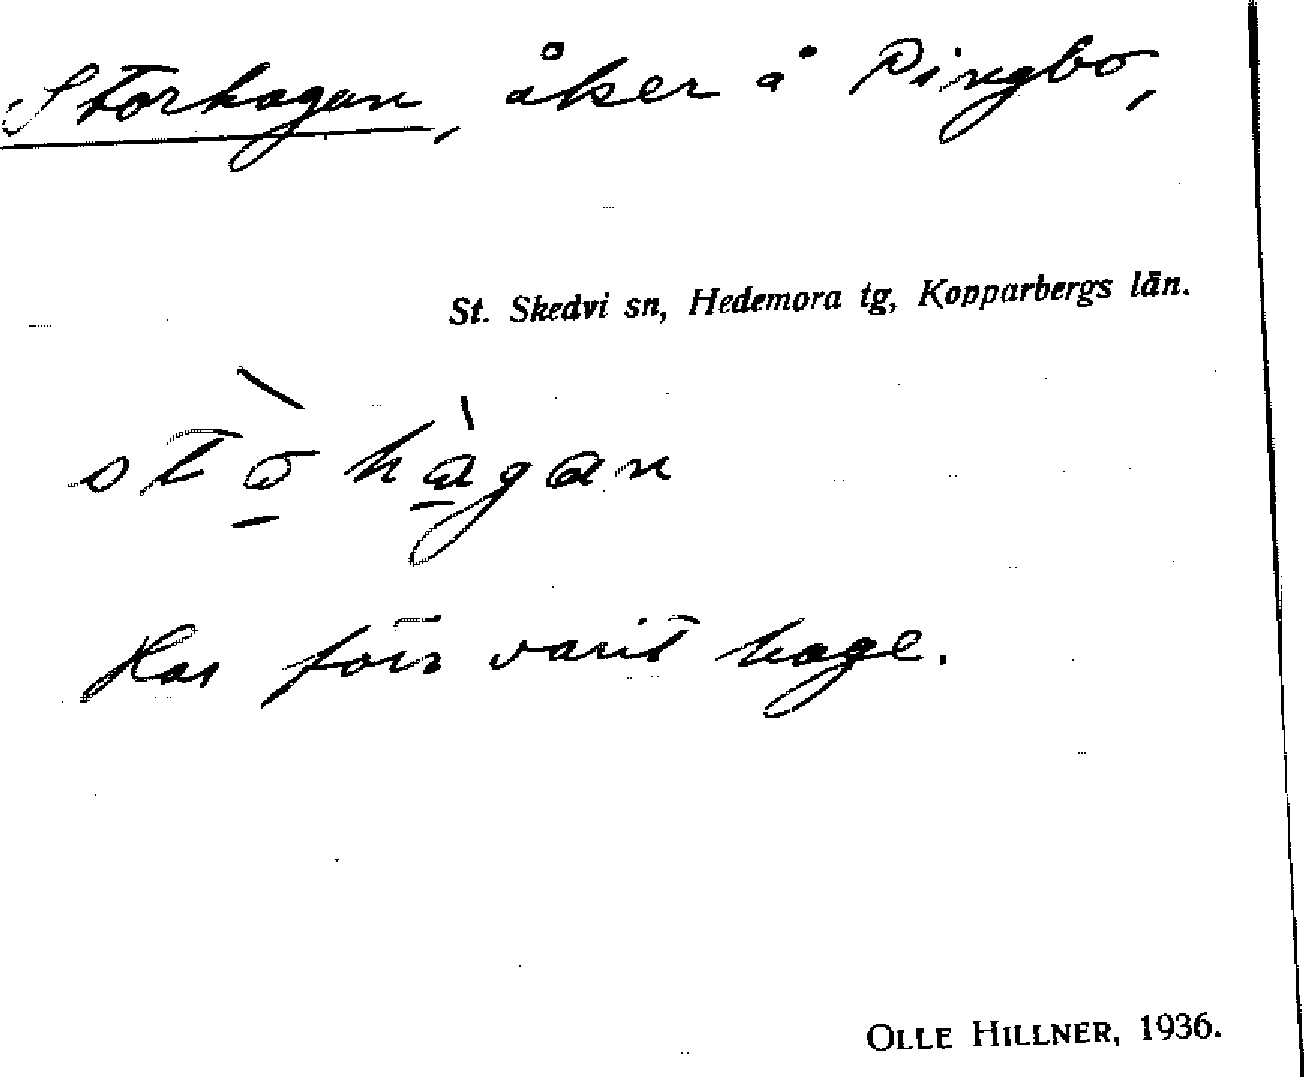 Storhagan, åker å Pingbo,
St. Skedvi sn, Hedemora tg, Kopparbergs län.
stò̠ hà̠gan
Har förr varit hage.
OLLE HILLNER, 1936.